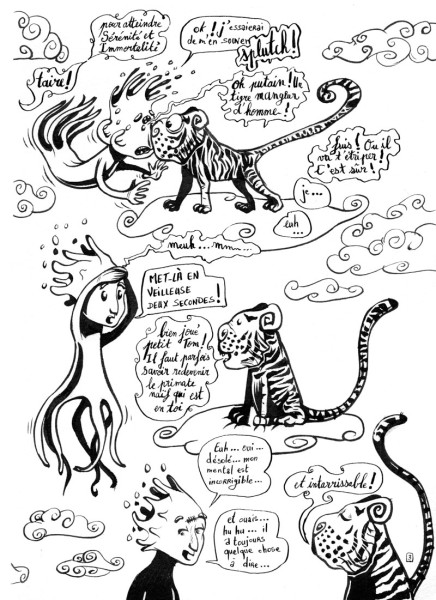 pour atteindre
Sérénité et
Immortalité
taire!
ok! j'essaierai
de m'en souven
splutch!
oh putain! Un
tigre mangeur
d'homme!
fuis! Ou il
va t'étriper!
c'est sûr!
je...
euh...
meuh...mm...
MET-LÀ EN
VEILLEUSE
DEUX SECONDES!
bien joué
petit Tom!
Il faut parfois
savoir redevenir
le primate
naïf qui est
en toi
Euh... oui...
désolé... mon
mental est
incorrigible...
et ouais...
hu hu... il
a toujours
quelque chose
à dire...
et intarrissable!
3